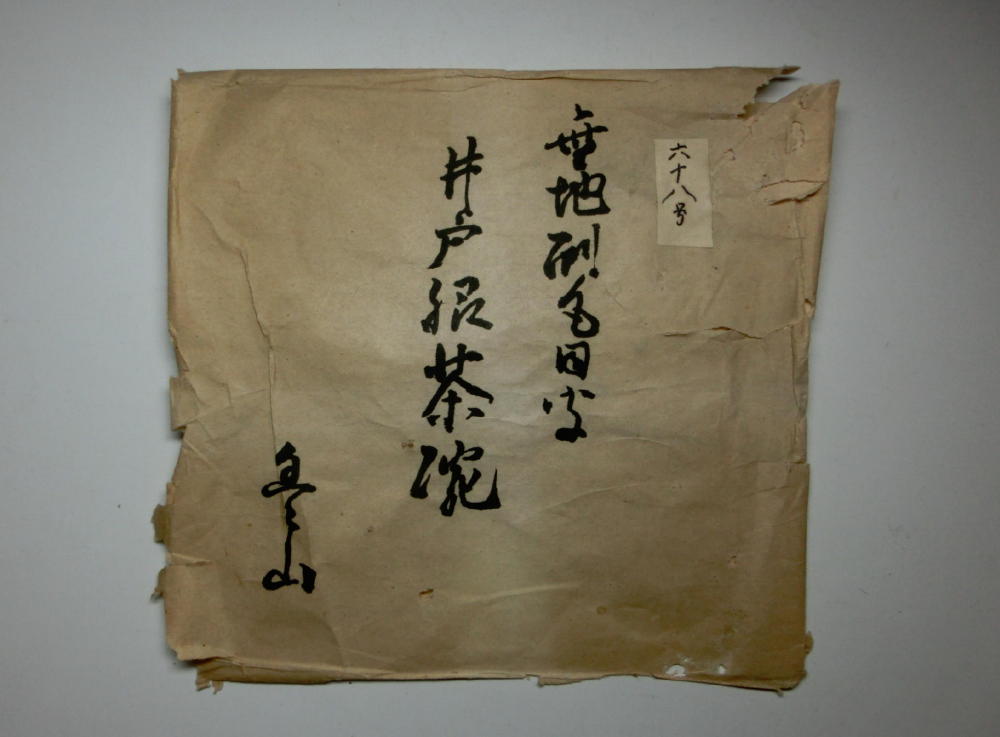 六十八号
無地刷毛目
井戸茶碗
山